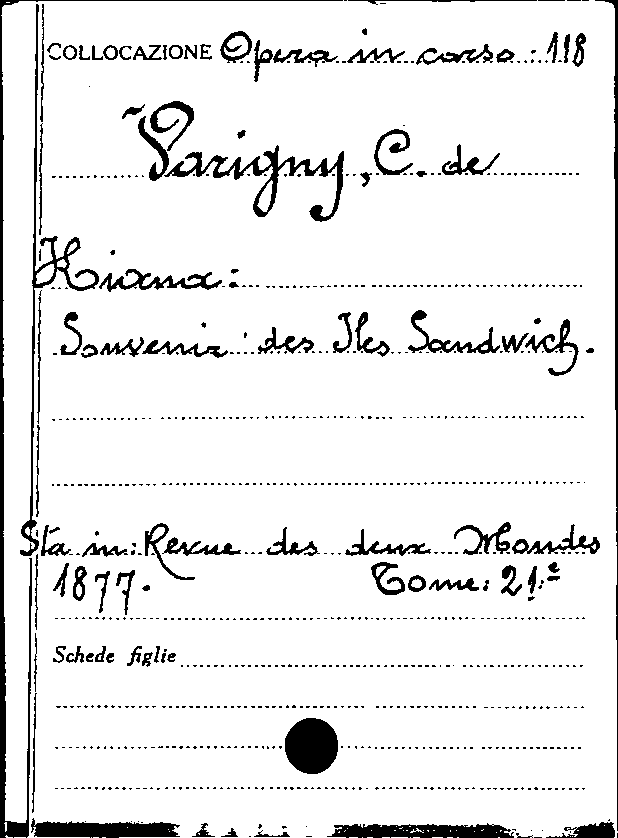 COLLOCAZIONE Opera in corso : 118
Varigny, C. de
Kiana:
Souvenir des Iles Sandwich.
Sta in: Revue des deux Mondes
1877. Tome: 21.e
Schede figlie